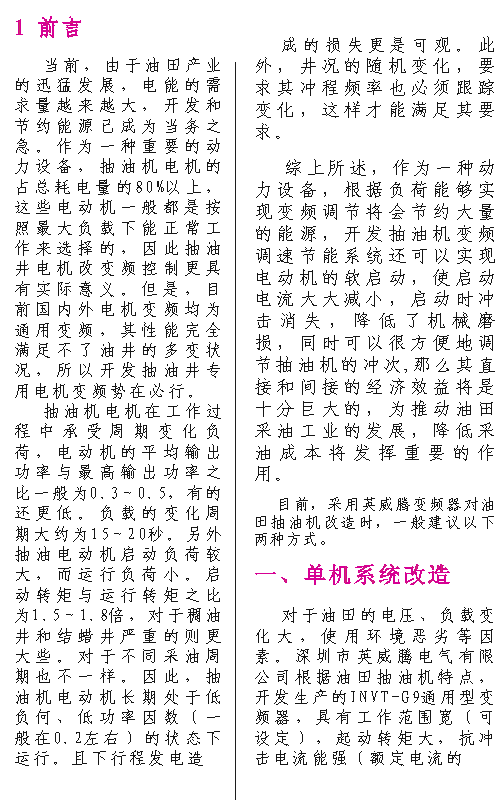 1 前言
当前，由于油田产业
的迅猛发展，电能的需
求量越来越大，开发和
节约能源已成为当务之
急。作为一种重要的动
力设备，抽油机电机的
占总耗电量的80%以上，
这些电动机一般都是按
照最大负载下能正常工
作来选择的，因此抽油
井电机改变频控制更具
有实际意义。但是，目
前国内外电机变频均为
通用变频，其性能完全
满足不了油井的多变状
况，所以开发抽油井专
用电机变频势在必行。
抽油机电机在工作过
程中承受周期变化负
荷，电动机的平均输出
功率与最高输出功率之
比一般为0.3~0.5，有的
还更低。负载的变化周
期大约为15~20秒。另外
抽油电动机启动负荷较
大，而运行负荷小。启
动转矩与运行转矩之比
为1.5~1.8倍，对于稠油
井和结蜡井严重的则更
大些。对于不同采油周
期也不一样。因此，抽
油机电动机长期处于低
负何、低功率因数（一
般在0.2左右）的状态下
运行。且下行程发电造
成的损失更是可观。此
外，井况的随机变化，要
求其冲程频率也必须跟踪
变化，这样才能满足其要
求。
综上所述，作为一种动
力设备，根据负荷能够实
现变频调节将会节约大量
的能源，开发抽油机变频
调速节能系统还可以实现
电动机的软启动，使启动
电流大大减小，启动时冲
击消失，降低了机械磨
损，同时可以很方便地调
节抽油机的冲次,那么其直
接和间接的经济效益将是
十分巨大的，为推动油田
采油工业的发展，降低采
油成本将发挥重要的作
用。
目前，采用英威腾变频器对油
田抽油机改造时，一般建议以下
两种方式。
一、单机系统改造
对于油田的电压、负载变
化大，使用环境恶劣等因
素。深圳市英威腾电气有限
公司根据油田抽油机特点，
开发生产的INVT-G9通用型变
频器，具有工作范围宽（可
设定），起动转矩大，抗冲
击电流能强（额定电流的